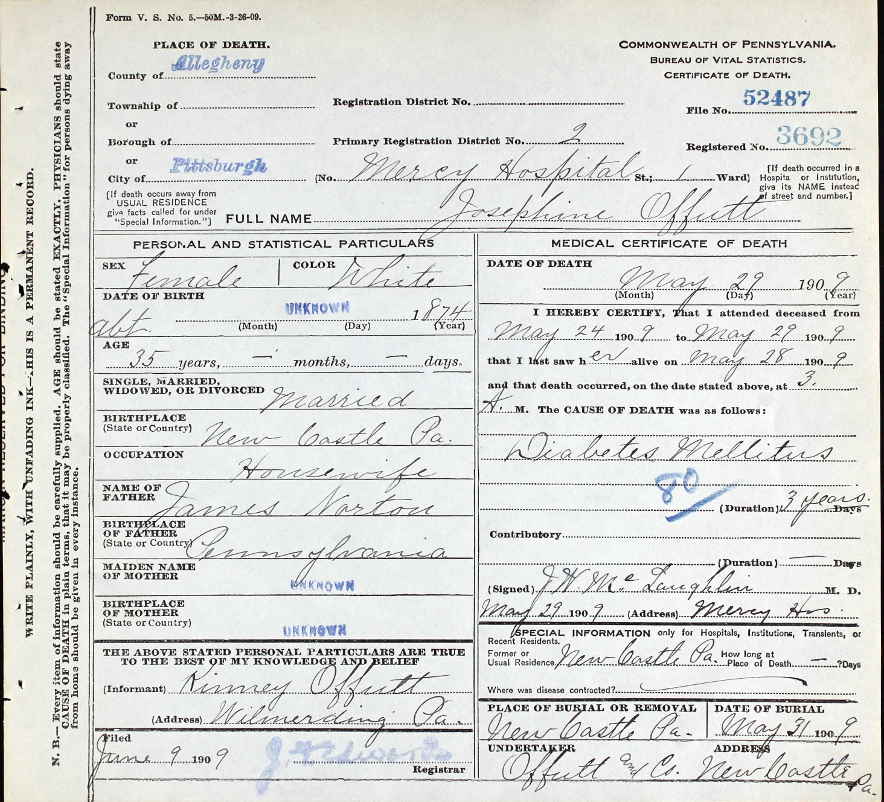 Form V. S. No. 5.—50M.-3-26-09.
PLACE OF DEATH.
County of Allegheny
Township of
or
Borough of
or
City of Pittsburgh
[If death occurs away from
USUAL RESIDENCE
give facts called for under
"Special Information."]
COMMONWEALTH OF PENNSYLVANIA.
BUREAU OF VITAL STATISTICS.
CERTIFICATE OF DEATH.
Registration District No.
File No. 52487
Primary Registration District No. 2
Registered No. 3692
(No. Mercy Hospital St.; 1 Ward)
[If death occurred in a
Hospital or Institution,
give its NAME instead
of street and number.]
FULL NAME Josephine Offutt
PERSONAL AND STATISTICAL PARTICULARS
SEX Female COLOR White
DATE OF BIRTH
abt UNKNOWN 1874
(Month) (Day) (Year)
AGE
35 years, — months, — days.
SINGLE, MARRIED,
WIDOWED, OR DIVORCED Married
BIRTHPLACE
(State or Country) New Castle Pa.
OCCUPATION
Housewife
NAME OF
FATHER James Norton
BIRTHPLACE
OF FATHER
(State or Country) Pennsylvania
MAIDEN NAME
OF MOTHER UNKNOWN
BIRTHPLACE
OF MOTHER
(State or Country) UNKNOWN
THE ABOVE STATED PERSONAL PARTICULARS ARE TRUE
TO THE BEST OF MY KNOWLEDGE AND BELIEF
(Informant) Kinney Offutt
(Address) Wilmerding Pa.
Filed
June 9 1909
Registrar
MEDICAL CERTIFICATE OF DEATH
DATE OF DEATH
May 29 1909
(Month) (Day) (Year)
I HEREBY CERTIFY, That I attended deceased from
May 24 1909 to May 29 1909
that I last saw her alive on May 28 1909
and that death occurred, on the date stated above, at 3.
A. M. The CAUSE OF DEATH was as follows:
Diabetes Mellitus
80
(Duration) 3 years. Days
Contributory
(Duration) — Days
(Signed) J W McLaughlin M. D.
May 29 1909 (Address) Mercy Hos
SPECIAL INFORMATION only for Hospitals, Institutions, Transients, or
Recent Residents.
Former or
Usual Residence New Castle Pa. How long at
Place of Death — ? Days
Where was disease contracted?
PLACE OF BURIAL OR REMOVAL DATE OF BURIAL
New Castle Pa. May 31 1909
UNDERTAKER ADDRESS
Offutt and Co. New Castle Pa.
WRITE PLAINLY, WITH UNFADING INK—THIS IS A PERMANENT RECORD.
N. B.—Every item of information should be carefully supplied. AGE should be stated EXACTLY. PHYSICIANS should state
CAUSE OF DEATH in plain terms, that it may be properly classified. The "Special Information" for persons dying away
from home should be given in every instance.